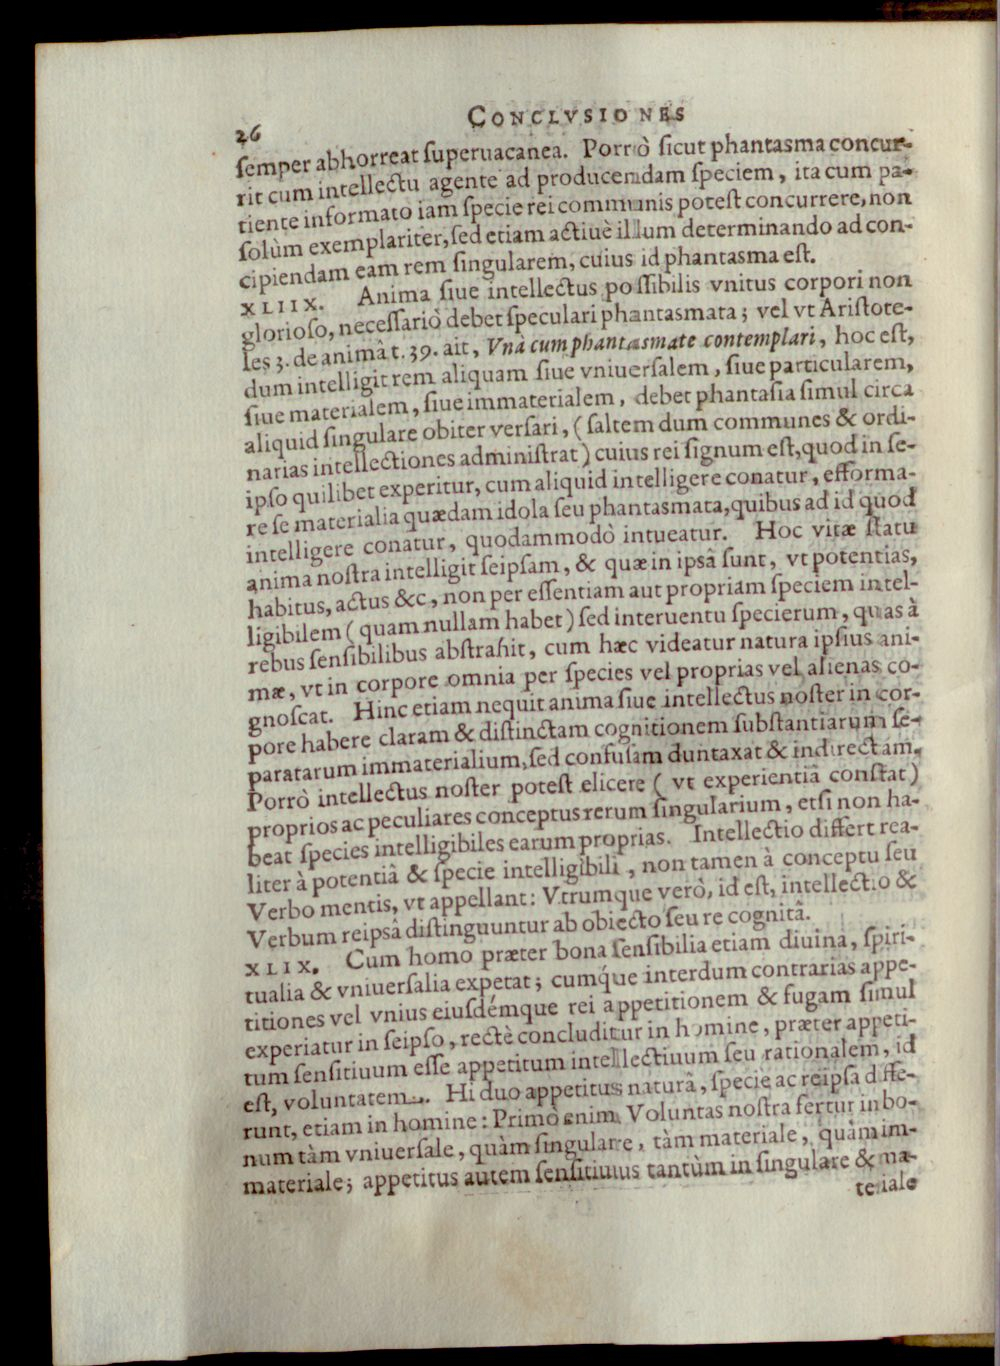 CONCLVSIONES
26
semper abhorreat superuacanea. Porrò sicut phantasma concur-
rit cum intellectu agente ad producendam speciem, ita cum pa-
tiente informato iam specie rei communis potest concurrere, non
solùm exemplariter, sed etiam actiuè illum determinando ad con-
cipiendam eam rem singularem, cuius id phantasma est.
XLIIX. Anima siue intellectus possibilis vnitus corpori non
glorioso, necessariò debet speculari phantasmata; vel vt Aristote-
les 3. de animâ t. 39. ait, Vnà cum phantasmate contemplari, hoc est,
dum intelligit rem aliquam siue vniuersalem, siue particularem,
siue materialem, siue immaterialem, debet phantasia simul circa
aliquid singulare obiter versari, (saltem dum communes & ordi-
narias intellectiones administrat) cuius rei signum est, quod in se-
ipso quilibet experitur, cum aliquid intelligere conatur, efforma-
re se materialia quædam idola seu phantasmata, quibus ad id quod
intelligere conatur, quodammodò intueatur. Hoc vitæ statu
anima nostra intelligit seipsam, & quæ in ipsâ sunt, vt potentias,
habitus, actus &c, non per essentiam aut propriam speciem intel-
ligibilem (quam nullam habet) sed interuentu specierum, quas à
rebus sensibilibus abstrahit, cum hæc videatur natura ipsius ani-
mæ, vt in corpore omnia per species vel proprias vel alienas co-
gnoscat. Hinc etiam nequit anima siue intellectus noster in cor-
pore habere claram & distinctam cognitionem substantiarum se-
paratarum immaterialium, sed confusam duntaxat & indirectam.
Porrò intellectus noster potest elicere (vt experientiâ constat)
proprios ac peculiares conceptus rerum singularium, etsi non ha-
beat species intelligibiles earum proprias. Intellectio differt rea-
liter à potentiâ & specie intelligibili, non tamen à conceptu seu
Verbo mentis, vt appellant: Vtrumque verò, id est, intellectio &
Verbum reipsâ distinguuntur ab obiecto seu re cognitâ.
XLIX. Cum homo præter bona sensibilia etiam diuina, spiri-
tualia & vniuersalia expetat; cumq́ue interdum contrarias appe-
titiones vel vnius eiusdémque rei appetitionem & fugam simul
experiatur in seipso, rectè concluditur in homine, præter appeti-
tum sensitiuum esse appetitum intellectiuum seu rationalem, id
est, voluntatem. Hi duo appetitus naturâ, specie ac reipsa diffe-
runt, etiam in homine: Primò enim Voluntas nostra fertur in bo-
num tàm vniuersale, quàm singulare, tàm materiale, quàm im-
materiale; appetitus autem sensitiuus tantùm in singulare & ma-
teriale